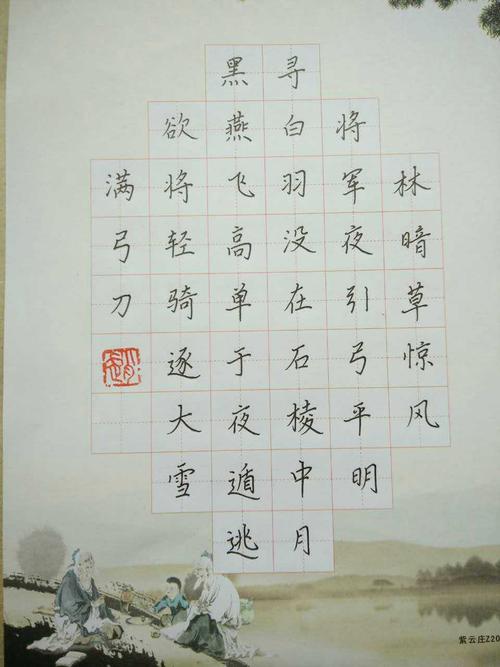 林暗草惊风
将军夜引弓平明
寻白羽没在石棱中月
黑燕飞高单于夜遁逃
欲将轻骑逐大雪
满弓刀
紫云庄Z20